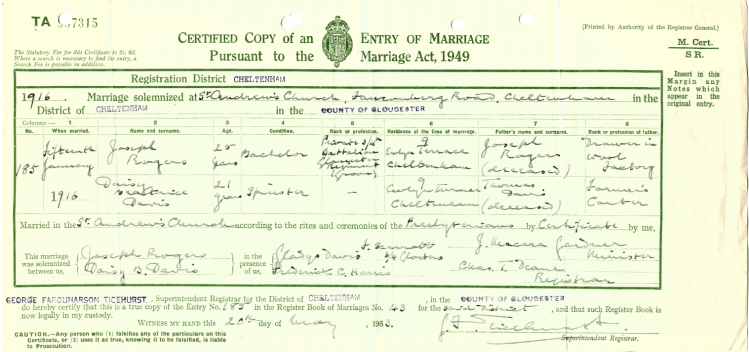 TA 7315
CERTIFIED COPY of an ENTRY OF MARRIAGE
Pursuant to the Marriage Act, 1949
[Printed by Authority of the Registrar General.]
The Statutory Fee for this Certificate is 3s. 6d.
Where a search is necessary to find the entry, a
Search Fee is payable in addition.
M. Cert.
S R.
Insert in this
Margin any
Notes which
appear in the
original entry.
Registration District CHELTENHAM
1916. Marriage solemnized at St. Andrew's Church, Fauconberg Road, Cheltenham in the
District of CHELTENHAM in the COUNTY OF GLOUCESTER
Columns :— 1 2 3 4 5 6 7 8
No. When married. Name and surname. Age. Condition. Rank or profession. Residence at the time of marriage. Father's name and surname. Rank or profession of father.
185 Fifteenth January 1916
Joseph Rogers 25 years Bachelor Private Battalion Gloucester Regiment (Groom) 9 Terrace Cheltenham Joseph Rogers (deceased) Drawer in Wool Factory
Daisy Beatrice Davis 21 years Spinster — 9 Cheltenham Thomas Davis (deceased) Farmer's Carter
Married in the St. Andrew's Church according to the rites and ceremonies of the Presbyterians by Certificate by me,
This marriage
was solemnized
between us,
Joseph Rogers
Daisy B. Davis
in the
presence
of us,
Gladys Davis
Frederick C. Harris
J. Macara Gardner
Minister
Chas. T. Deane
Registrar
GEORGE FARQUHARSON TICEHURST, Superintendent Registrar for the District of CHELTENHAM, in the COUNTY OF GLOUCESTER
do hereby certify that this is a true copy of the Entry No. 185 in the Register Book of Marriages No. 43 for the said District, and that such Register Book is
now legally in my custody.
WITNESS MY HAND this 20th day of May, 1953.
G F Ticehurst
Superintendent Registrar.
CAUTION.—Any person who (1) falsifies any of the particulars on this
Certificate, or (2) uses it as true, knowing it to be falsified, is liable
to Prosecution.